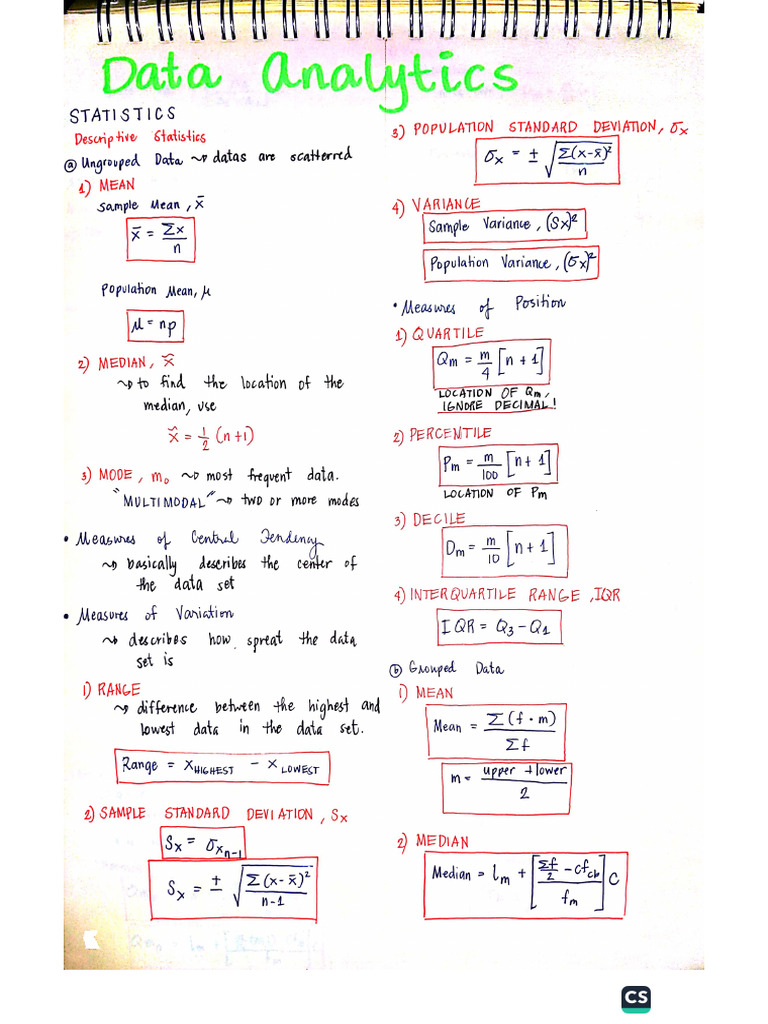 Data Analytics
STATISTICS
Descriptive Statistics
ⓐ Ungrouped Data ⤳ datas are scatterred
1) MEAN
Sample Mean, x̄
x̄ = Σx / n
Population Mean, μ
μ = np
2) MEDIAN, x̃
⤳ to find the location of the
median, use
x̃ = 1/2 (n+1)
3) MODE, mₒ ⤳ most frequent data.
"MULTIMODAL" ⤳ two or more modes
• Measures of Central Tendency
⤳ basically describes the center of
the data set
• Measures of Variation
⤳ describes how spreat the data
set is
1) RANGE
⤳ difference between the highest and
lowest data in the data set.
Range = x HIGHEST − x LOWEST
2) SAMPLE STANDARD DEVIATION, Sx
Sx = σx n-1
Sx = ± √(Σ(x-x̄)² / n-1)
3) POPULATION STANDARD DEVIATION, σx
σx = ± √(Σ(x-x̄)² / n)
4) VARIANCE
Sample Variance, (Sx)²
Population Variance, (σx)²
• Measures of Position
1) QUARTILE
Qm = m/4 [n + 1]
LOCATION OF Qm,
IGNORE DECIMAL!
2) PERCENTILE
Pm = m/100 [n + 1]
LOCATION OF Pm
3) DECILE
Dm = m/10 [n + 1]
4) INTERQUARTILE RANGE, IQR
IQR = Q3 − Q1
ⓑ Grouped Data
1) MEAN
Mean = Σ(f · m) / Σf
m = upper + lower / 2
2) MEDIAN
Median = lm + [(Σf/2 − cfcb) / fm] C
CS